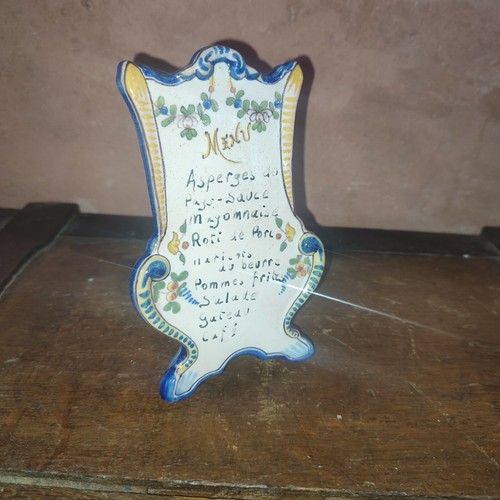 MENU
Asperges du
Pays-Sauce
Mayonnaise
Roti de Porc
au beurre
Pommes frites
Salade
Gateau
Café